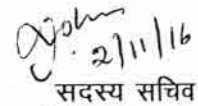 2/11/16
सदस्य सचिव